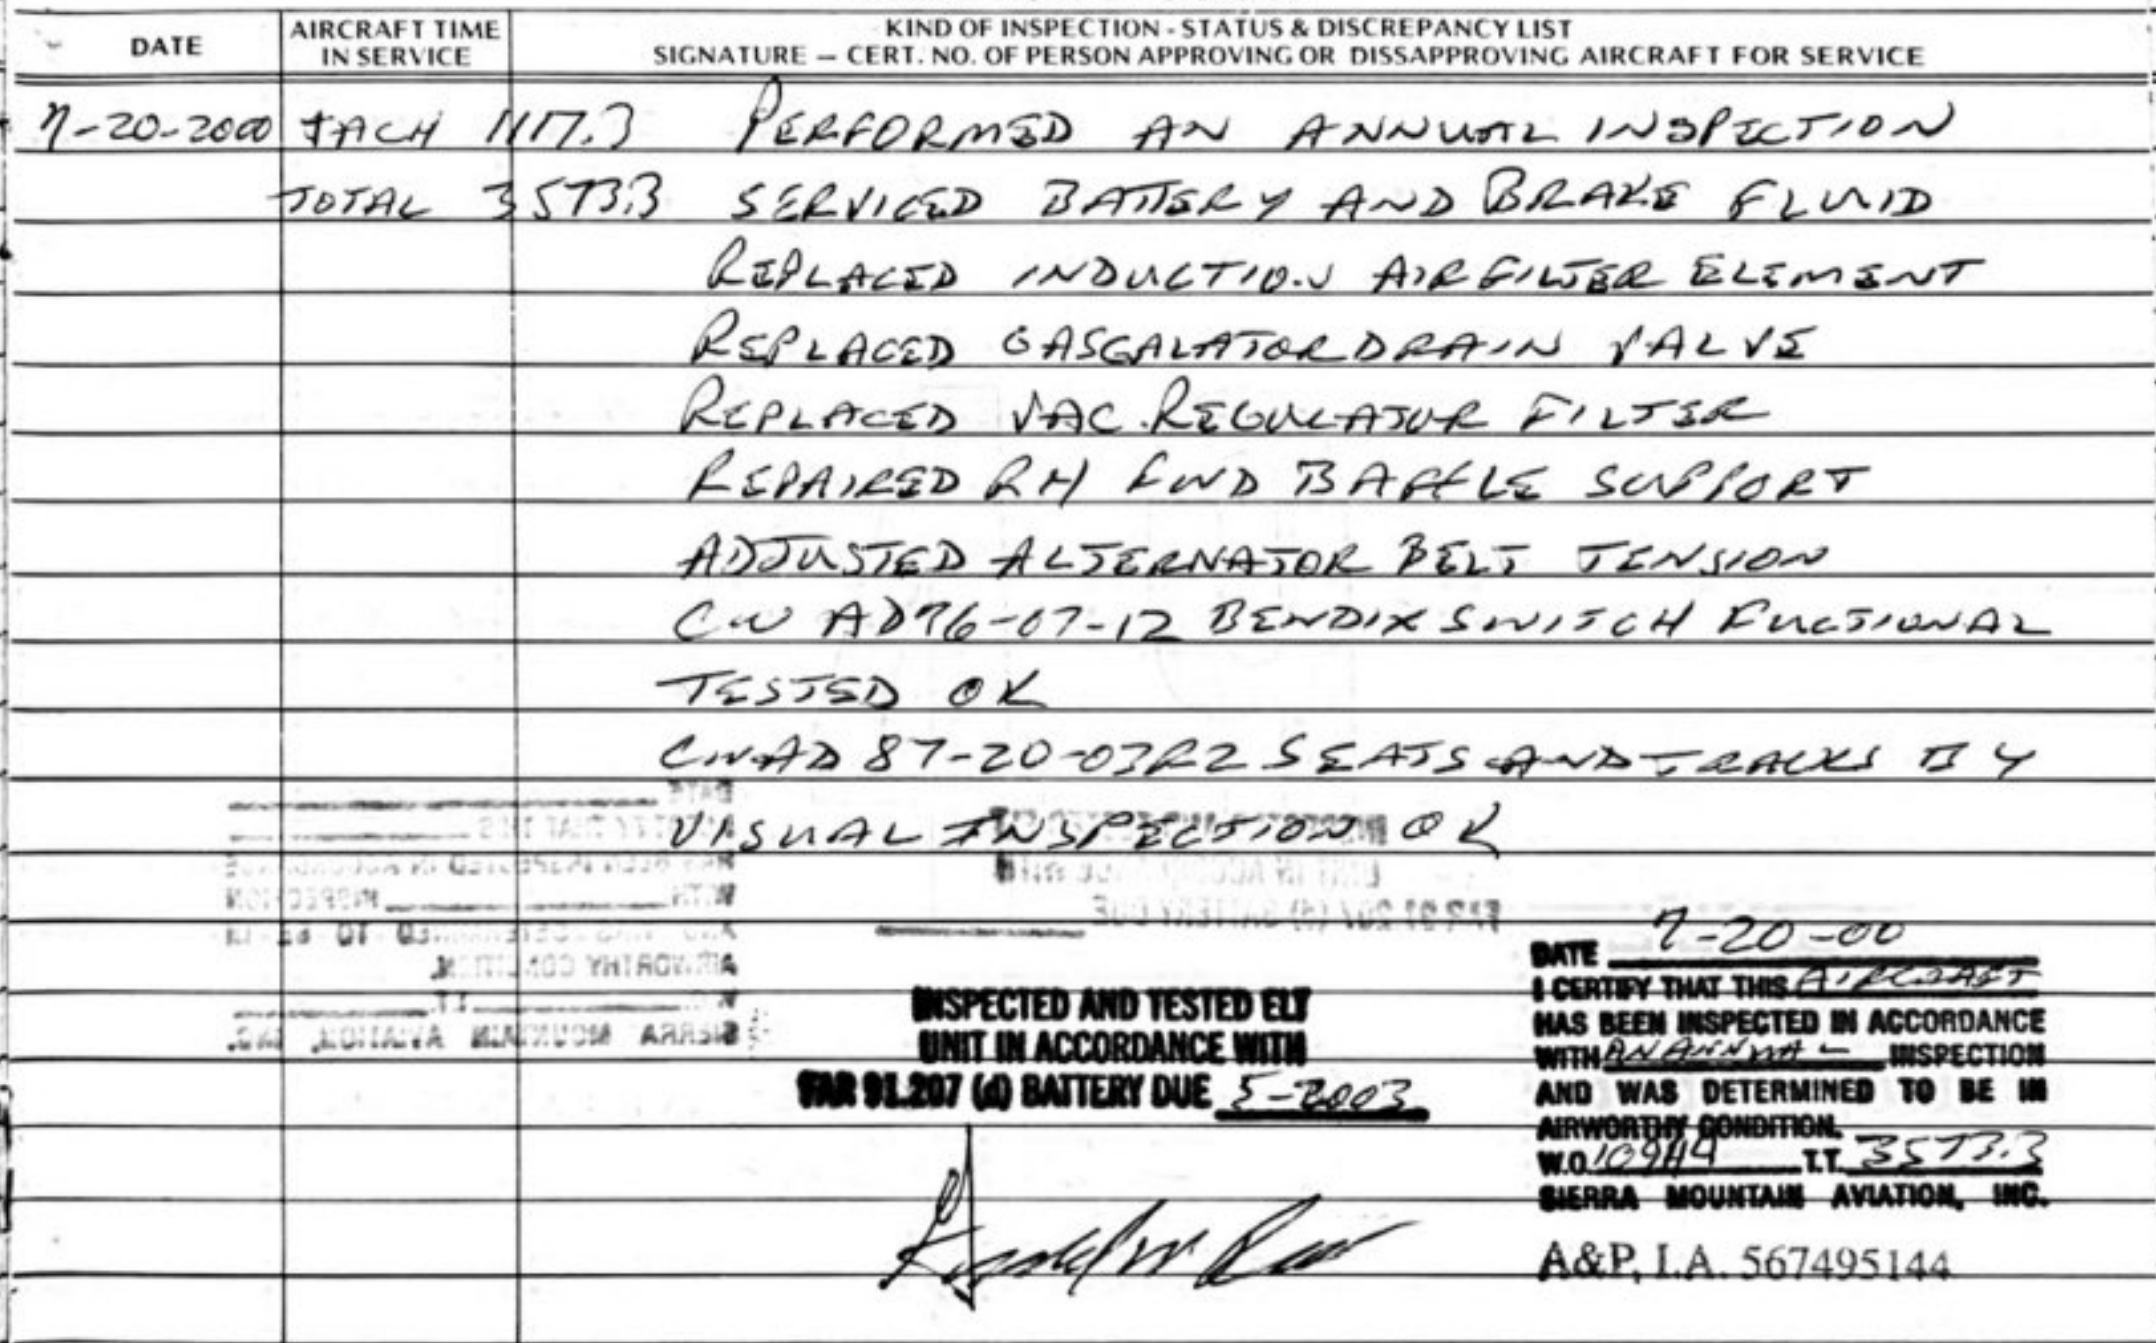 DATE
AIRCRAFT TIME
IN SERVICE
KIND OF INSPECTION - STATUS & DISCREPANCY LIST
SIGNATURE — CERT. NO. OF PERSON APPROVING OR DISSAPPROVING AIRCRAFT FOR SERVICE
7-20-2000 TACH 1117.3 PERFORMED AN ANNUAL INSPECTION
TOTAL 3573.3 SERVICED BATTERY AND BRAKE FLUID
REPLACED INDUCTION AIR FILTER ELEMENT
REPLACED GASCALATOR DRAIN VALVE
REPLACED VAC. REGULATOR FILTER
REPAIRED RH FWD BAFFLE SUPPORT
ADJUSTED ALTERNATOR BELT TENSION
CW AD 76-07-12 BENDIX SWITCH FUCTIONAL
TESTED OK
CW AD 87-20-03R2 SEATS AND TRACKS BY
VISUAL INSPECTION OK
INSPECTED AND TESTED ELT
UNIT IN ACCORDANCE WITH
FAR 91.207 (d) BATTERY DUE 5-2003
DATE 7-20-00
I CERTIFY THAT THIS AIRCRAFT
HAS BEEN INSPECTED IN ACCORDANCE
WITH AN ANNUAL INSPECTION
AND WAS DETERMINED TO BE IN
AIRWORTHY CONDITION.
W.O. T.T. 3573.3
SIERRA MOUNTAIN AVIATION, INC.
A&P, I.A. 567495144